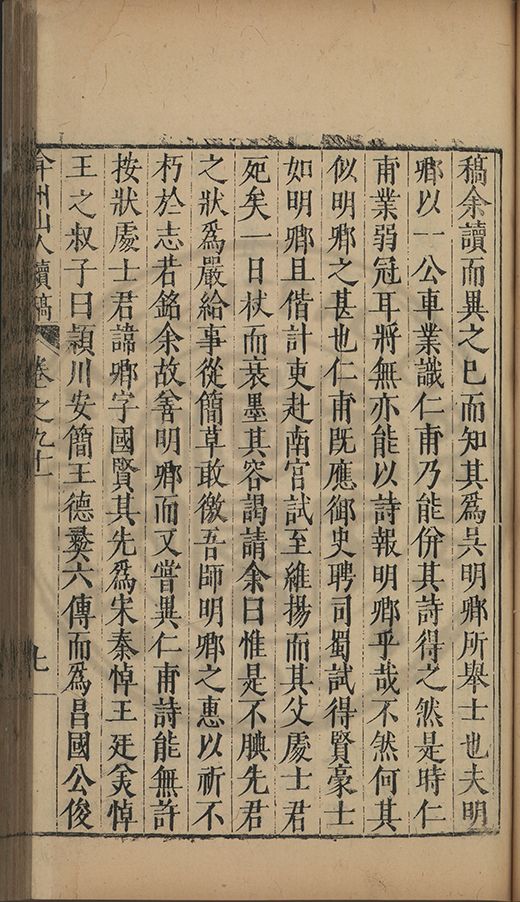 稿余讀而異之已而知其爲吳明卿所舉士也夫明
卿以一公車業識仁甫乃能併其詩得之然是時仁
甫業弱冠耳將無亦能以詩報明卿乎哉不然何其
似明卿之甚也仁甫旣應御史聘司蜀試得賢豪士
如明卿且偕計吏赴南宮試至維揚而其父處士君
死矣一日杖而衰墨其容謁請余曰惟是不腆先君
之狀爲嚴給事從簡草敢徼吾師明卿之惠以祈不
朽於志若銘余故善明卿而又嘗異仁甫詩能無許
按狀處士君諱卿字國賢其先爲宋秦悼王廷美悼
王之叔子曰潁川安簡王德彝六傳而爲昌國公俊
弇州山人續稿 卷之九十 七